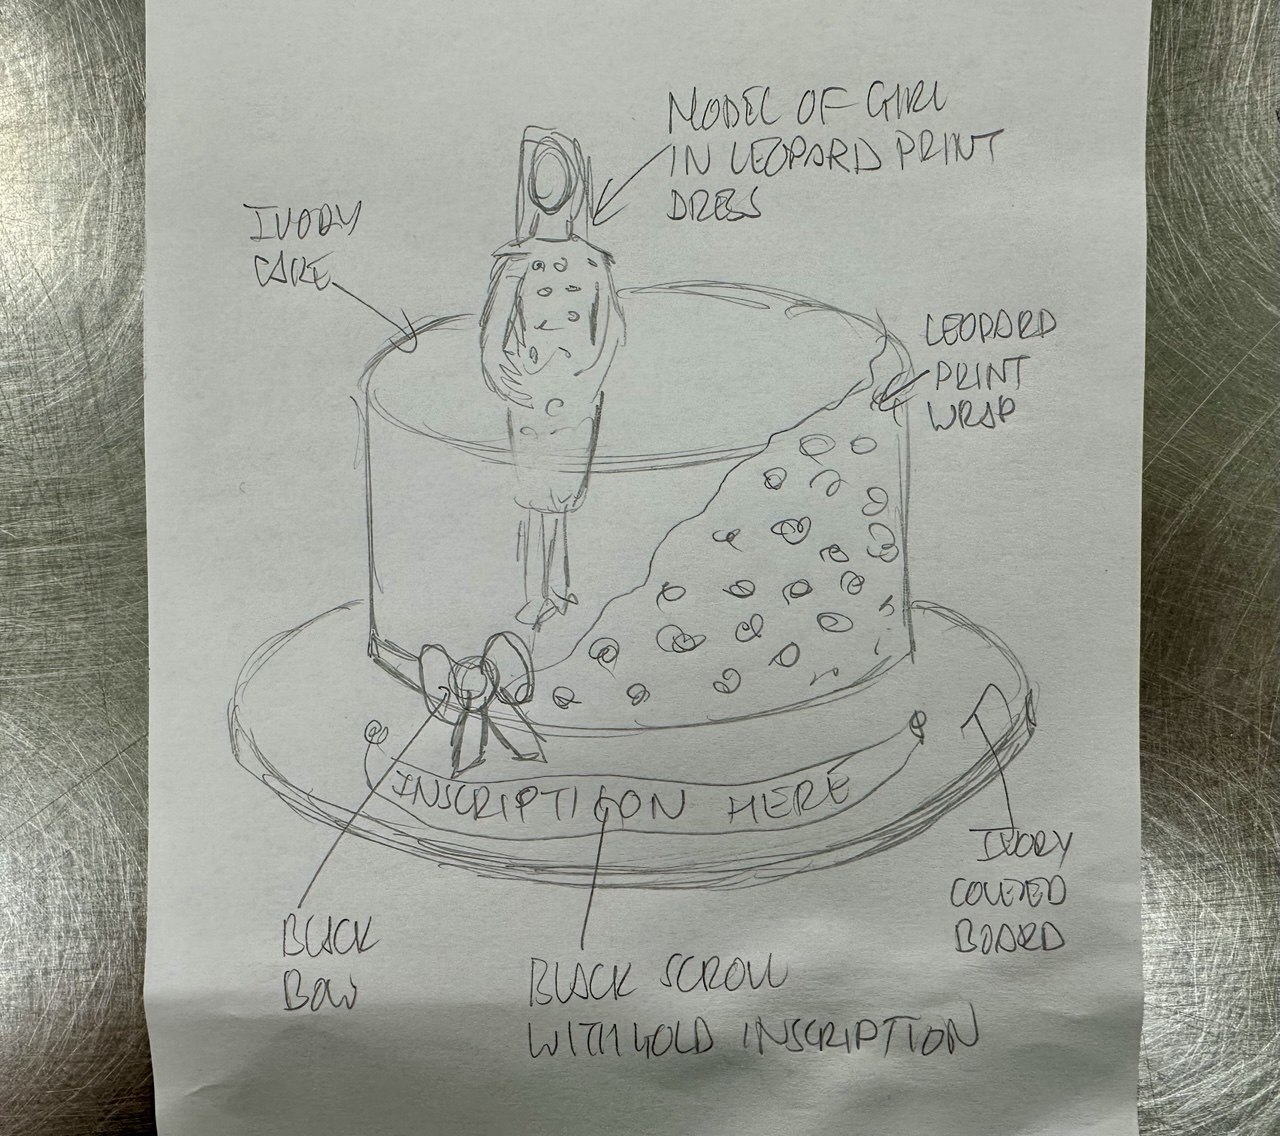 MODEL OF GIRL
IN LEOPARD PRINT
DRESS
IVORY
CAKE
LEOPARD
PRINT
WRAP
INSCRIPTION HERE
IVORY
COVERED
BOARD
BLACK
BOW
BLACK SCROLL
WITH GOLD INSCRIPTION